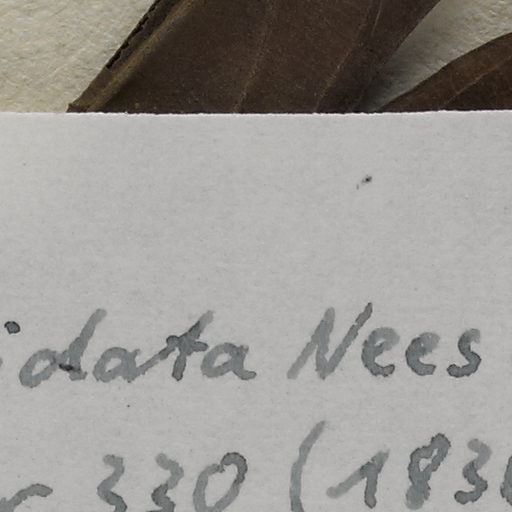 idata Nees
r 330 (183